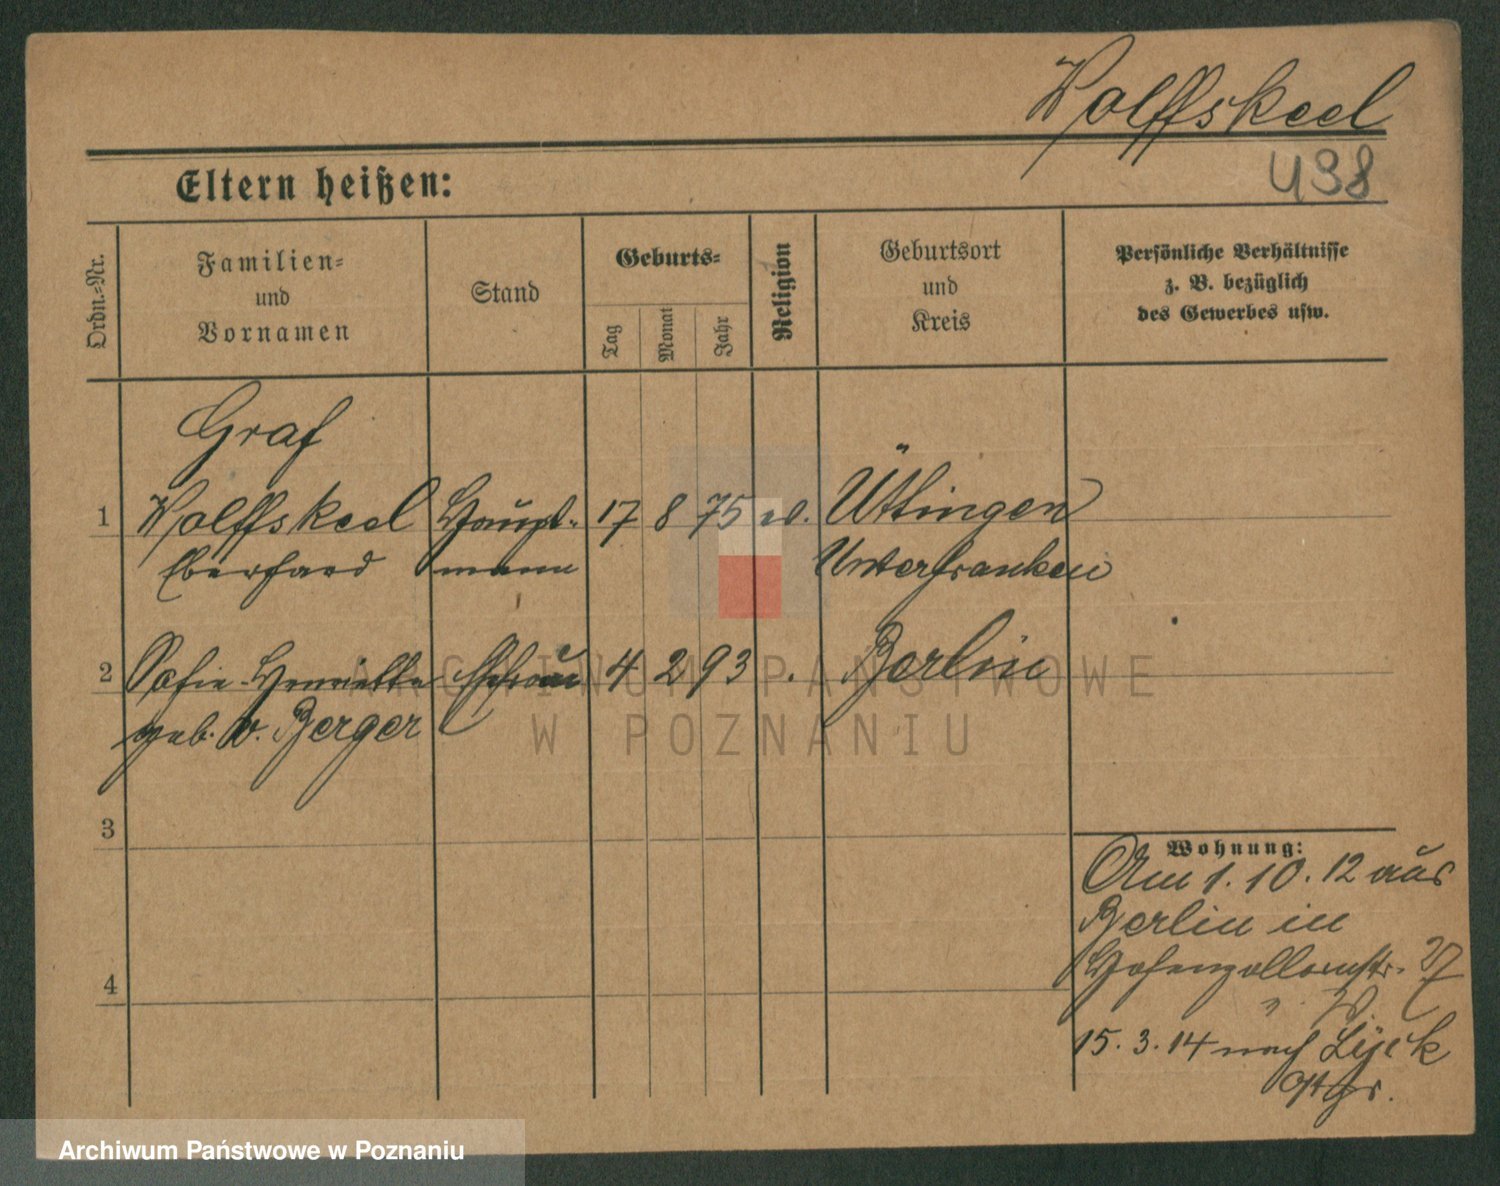 Wolffskeel
438
Eltern heißen:
Ordn.-Nr.
Familien-
und
Vornamen
Stand
Geburts-
Tag
Monat
Jahr
Religion
Geburtsort
und
Kreis
Persönliche Verhältnisse
z. B. bezüglich
des Gewerbes usw.
Graf
1 Wolffskeel Haupt- 17 8 75 ev. Üttingen
Eberhard mann Unterfranken
2 Sofie Henriette Ehefrau 4 2 93 . Berlin
geb. v. Berger
3
4
Wohnung:
Am 1. 10. 12 aus
Berlin in
Hohenzollernstr. 37
" W.
15. 3. 14 nach Lyck
Ostpr.
ARCHIWUM PAŃSTWOWE
W POZNANIU
Archiwum Państwowe w Poznaniu